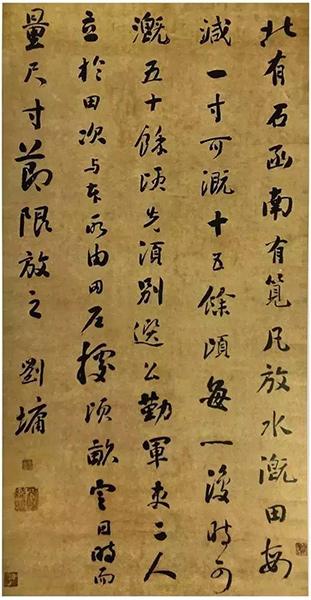 北有石函南有筧凡放水溉田每
減一寸可溉十五餘頃每一復時可
溉五十餘頃先須別選公勤軍吏二人
立於田次与本所由田戶據頃畝定日時而
量尺寸節限放之 劉墉